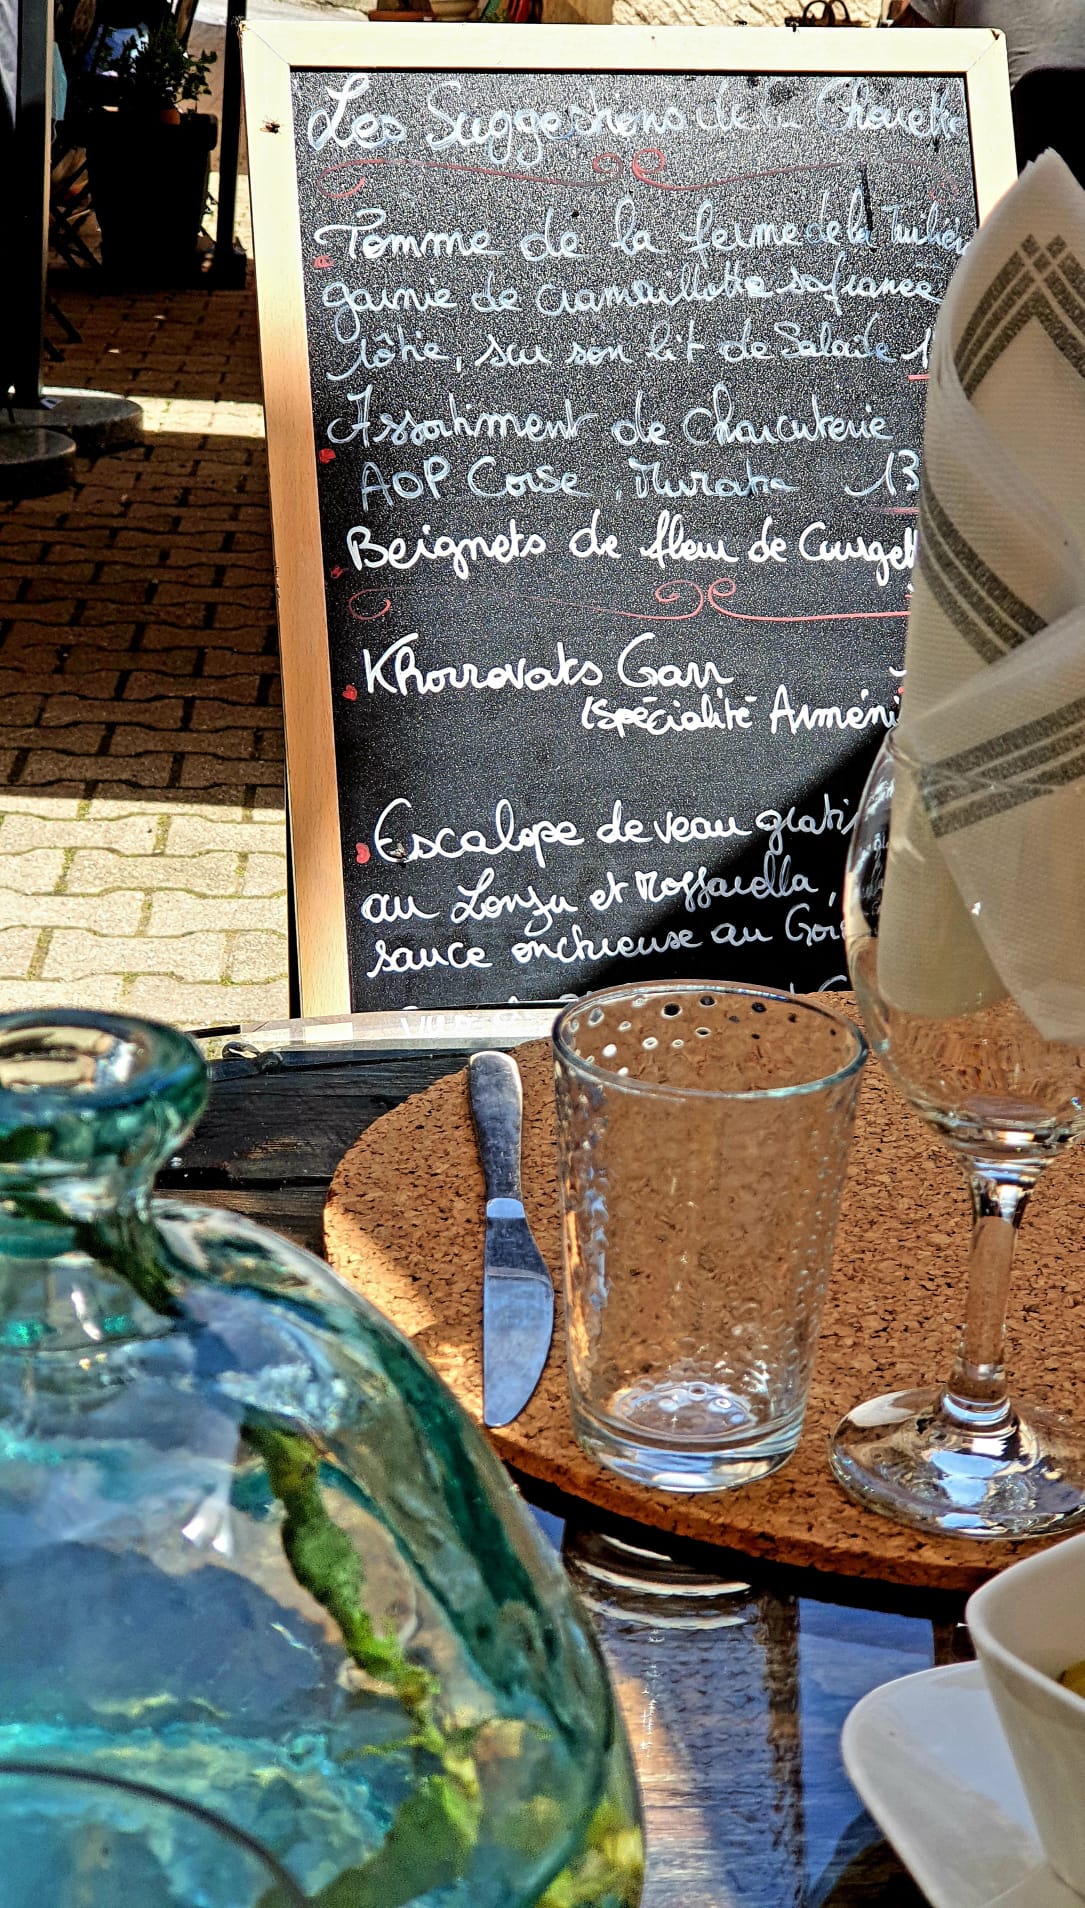 Les Suggestions de la Chouette
Tomme de la ferme de la
garnie de cramaillotte safranée
rôtie, sur son lit de Salade 1
Assortiment de Charcuterie
AOP Corse, Muratta 13
Beignets de fleur de Courget
Khorrovats Garr
(spécialité Arméni
Escalope de veau grati
au Lonzu et Mozzarella,
sauce onctueuse au Go